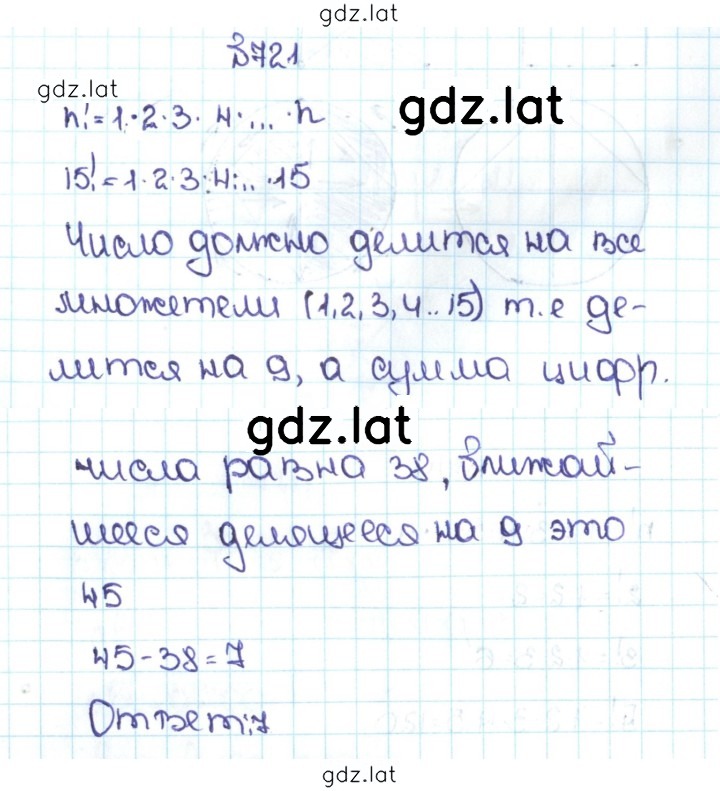 gdz.lat
В721
gdz.lat
n! = 1·2·3·4·...·n
gdz.lat
15! = 1·2·3·4·...·15
Число должно делится на все
множетели (1,2,3,4..15) т.е де-
лится на 9, а сумма цифр.
gdz.lat
числа равна 38, ближай-
шееся делющееся на 9 это
45
45-38=7
Ответ:7
gdz.lat